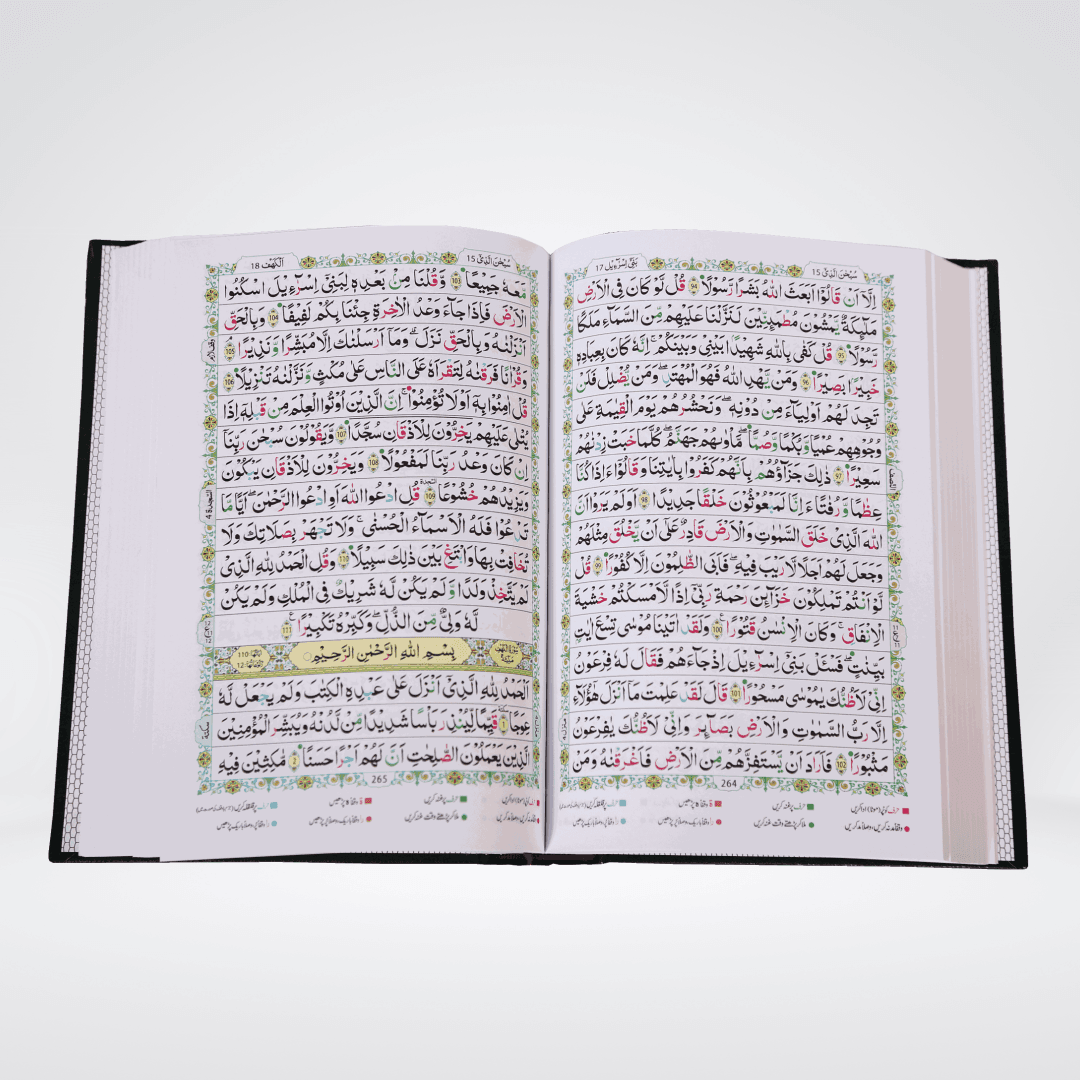 سُبْحٰنَ الَّذِیْۤ 15
بَنِیْۤ اِسْرَآءِیْل 17
اِلَّاۤ اَنْ قَالُوْۤا اَبَعَثَ اللّٰهُ بَشَرًا رَّسُوْلًا 94 قُلْ لَّوْ كَانَ فِی الْاَرْضِ
مَلٰٓىِٕكَةٌ یَّمْشُوْنَ مُطْمَىِٕنِّیْنَ لَنَزَّلْنَا عَلَیْهِمْ مِّنَ السَّمَآءِ مَلَكًا
رَّسُوْلًا 95 قُلْ كَفٰى بِاللّٰهِ شَهِیْدًۢا بَیْنِیْ وَبَیْنَكُمْ ؕ اِنَّهٗ كَانَ بِعِبَادِهٖ
خَبِیْرًۢا بَصِیْرًا 96 وَمَنْ یَّهْدِ اللّٰهُ فَهُوَ الْمُهْتَدِ ۚ وَمَنْ یُّضْلِلْ فَلَنْ
تَجِدَ لَهُمْ اَوْلِیَآءَ مِنْ دُوْنِهٖ ؕ وَنَحْشُرُهُمْ یَوْمَ الْقِیٰمَةِ عَلٰى
وُجُوْهِهِمْ عُمْیًا وَّبُكْمًا وَّصُمًّا ؕ مَاْوٰىهُمْ جَهَنَّمُ ؕ كُلَّمَا خَبَتْ زِدْنٰهُمْ
سَعِیْرًا 97 ذٰلِكَ جَزَآؤُهُمْ بِاَنَّهُمْ كَفَرُوْا بِاٰیٰتِنَا وَقَالُوْۤا ءَاِذَا كُنَّا
عِظٰمًا وَّرُفَاتًا ءَاِنَّا لَمَبْعُوْثُوْنَ خَلْقًا جَدِیْدًا 98 اَوَلَمْ یَرَوْا اَنَّ
اللّٰهَ الَّذِیْ خَلَقَ السَّمٰوٰتِ وَالْاَرْضَ قَادِرٌ عَلٰۤى اَنْ یَّخْلُقَ مِثْلَهُمْ
وَجَعَلَ لَهُمْ اَجَلًا لَّا رَیْبَ فِیْهِ ؕ فَاَبَى الظّٰلِمُوْنَ اِلَّا كُفُوْرًا 99 قُلْ
لَّوْ اَنْتُمْ تَمْلِكُوْنَ خَزَآىِٕنَ رَحْمَةِ رَبِّیْۤ اِذًا لَّاَمْسَكْتُمْ خَشْیَةَ
الْاِنْفَاقِ ؕ وَكَانَ الْاِنْسَانُ قَتُوْرًا 100 وَلَقَدْ اٰتَیْنَا مُوْسٰى تِسْعَ اٰیٰتٍۭ
بَیِّنٰتٍ فَسْـَٔلْ بَنِیْۤ اِسْرَآءِیْلَ اِذْ جَآءَهُمْ فَقَالَ لَهٗ فِرْعَوْنُ
اِنِّیْ لَاَظُنُّكَ یٰمُوْسٰى مَسْحُوْرًا 101 قَالَ لَقَدْ عَلِمْتَ مَاۤ اَنْزَلَ هٰۤؤُلَآءِ
اِلَّا رَبُّ السَّمٰوٰتِ وَالْاَرْضِ بَصَآىِٕرَ ۚ وَاِنِّیْ لَاَظُنُّكَ یٰفِرْعَوْنُ
مَثْبُوْرًا 102 فَاَرَادَ اَنْ یَّسْتَفِزَّهُمْ مِّنَ الْاَرْضِ فَاَغْرَقْنٰهُ وَمَنْ
264
سُبْحٰنَ الَّذِیْۤ 15
اَلْكَهْف 18
مَّعَهٗ جَمِیْعًا 103 وَّقُلْنَا مِنْۢ بَعْدِهٖ لِبَنِیْۤ اِسْرَآءِیْلَ اسْكُنُوا
الْاَرْضَ فَاِذَا جَآءَ وَعْدُ الْاٰخِرَةِ جِئْنَا بِكُمْ لَفِیْفًا 104 وَبِالْحَقِّ
اَنْزَلْنٰهُ وَبِالْحَقِّ نَزَلَ ؕ وَمَاۤ اَرْسَلْنٰكَ اِلَّا مُبَشِّرًا وَّنَذِیْرًا 105
وَقُرْاٰنًا فَرَقْنٰهُ لِتَقْرَاَهٗ عَلَى النَّاسِ عَلٰى مُكْثٍ وَّنَزَّلْنٰهُ تَنْزِیْلًا 106
قُلْ اٰمِنُوْا بِهٖۤ اَوْ لَا تُؤْمِنُوْا ؕ اِنَّ الَّذِیْنَ اُوْتُوا الْعِلْمَ مِنْ قَبْلِهٖۤ اِذَا
یُتْلٰى عَلَیْهِمْ یَخِرُّوْنَ لِلْاَذْقَانِ سُجَّدًا 107 وَّیَقُوْلُوْنَ سُبْحٰنَ رَبِّنَاۤ
اِنْ كَانَ وَعْدُ رَبِّنَا لَمَفْعُوْلًا 108 وَیَخِرُّوْنَ لِلْاَذْقَانِ یَبْكُوْنَ
وَیَزِیْدُهُمْ خُشُوْعًا 109 قُلِ ادْعُوا اللّٰهَ اَوِ ادْعُوا الرَّحْمٰنَ ؕ اَیًّا مَّا
تَدْعُوْا فَلَهُ الْاَسْمَآءُ الْحُسْنٰى ۚ وَلَا تَجْهَرْ بِصَلَاتِكَ وَلَا
تُخَافِتْ بِهَا وَابْتَغِ بَیْنَ ذٰلِكَ سَبِیْلًا 110 وَقُلِ الْحَمْدُ لِلّٰهِ الَّذِیْ
لَمْ یَتَّخِذْ وَلَدًا وَّلَمْ یَكُنْ لَّهٗ شَرِیْكٌ فِی الْمُلْكِ وَلَمْ یَكُنْ
لَّهٗ وَلِیٌّ مِّنَ الذُّلِّ وَكَبِّرْهُ تَكْبِیْرًا 111
بِسْمِ اللّٰهِ الرَّحْمٰنِ الرَّحِیْمِ
اَلْحَمْدُ لِلّٰهِ الَّذِیْۤ اَنْزَلَ عَلٰى عَبْدِهِ الْكِتٰبَ وَلَمْ یَجْعَلْ لَّهٗ
عِوَجًا 1 قَیِّمًا لِّیُنْذِرَ بَاْسًا شَدِیْدًا مِّنْ لَّدُنْهُ وَیُبَشِّرَ الْمُؤْمِنِیْنَ
الَّذِیْنَ یَعْمَلُوْنَ الصّٰلِحٰتِ اَنَّ لَهُمْ اَجْرًا حَسَنًا 2 مَّاكِثِیْنَ فِیْهِ
265